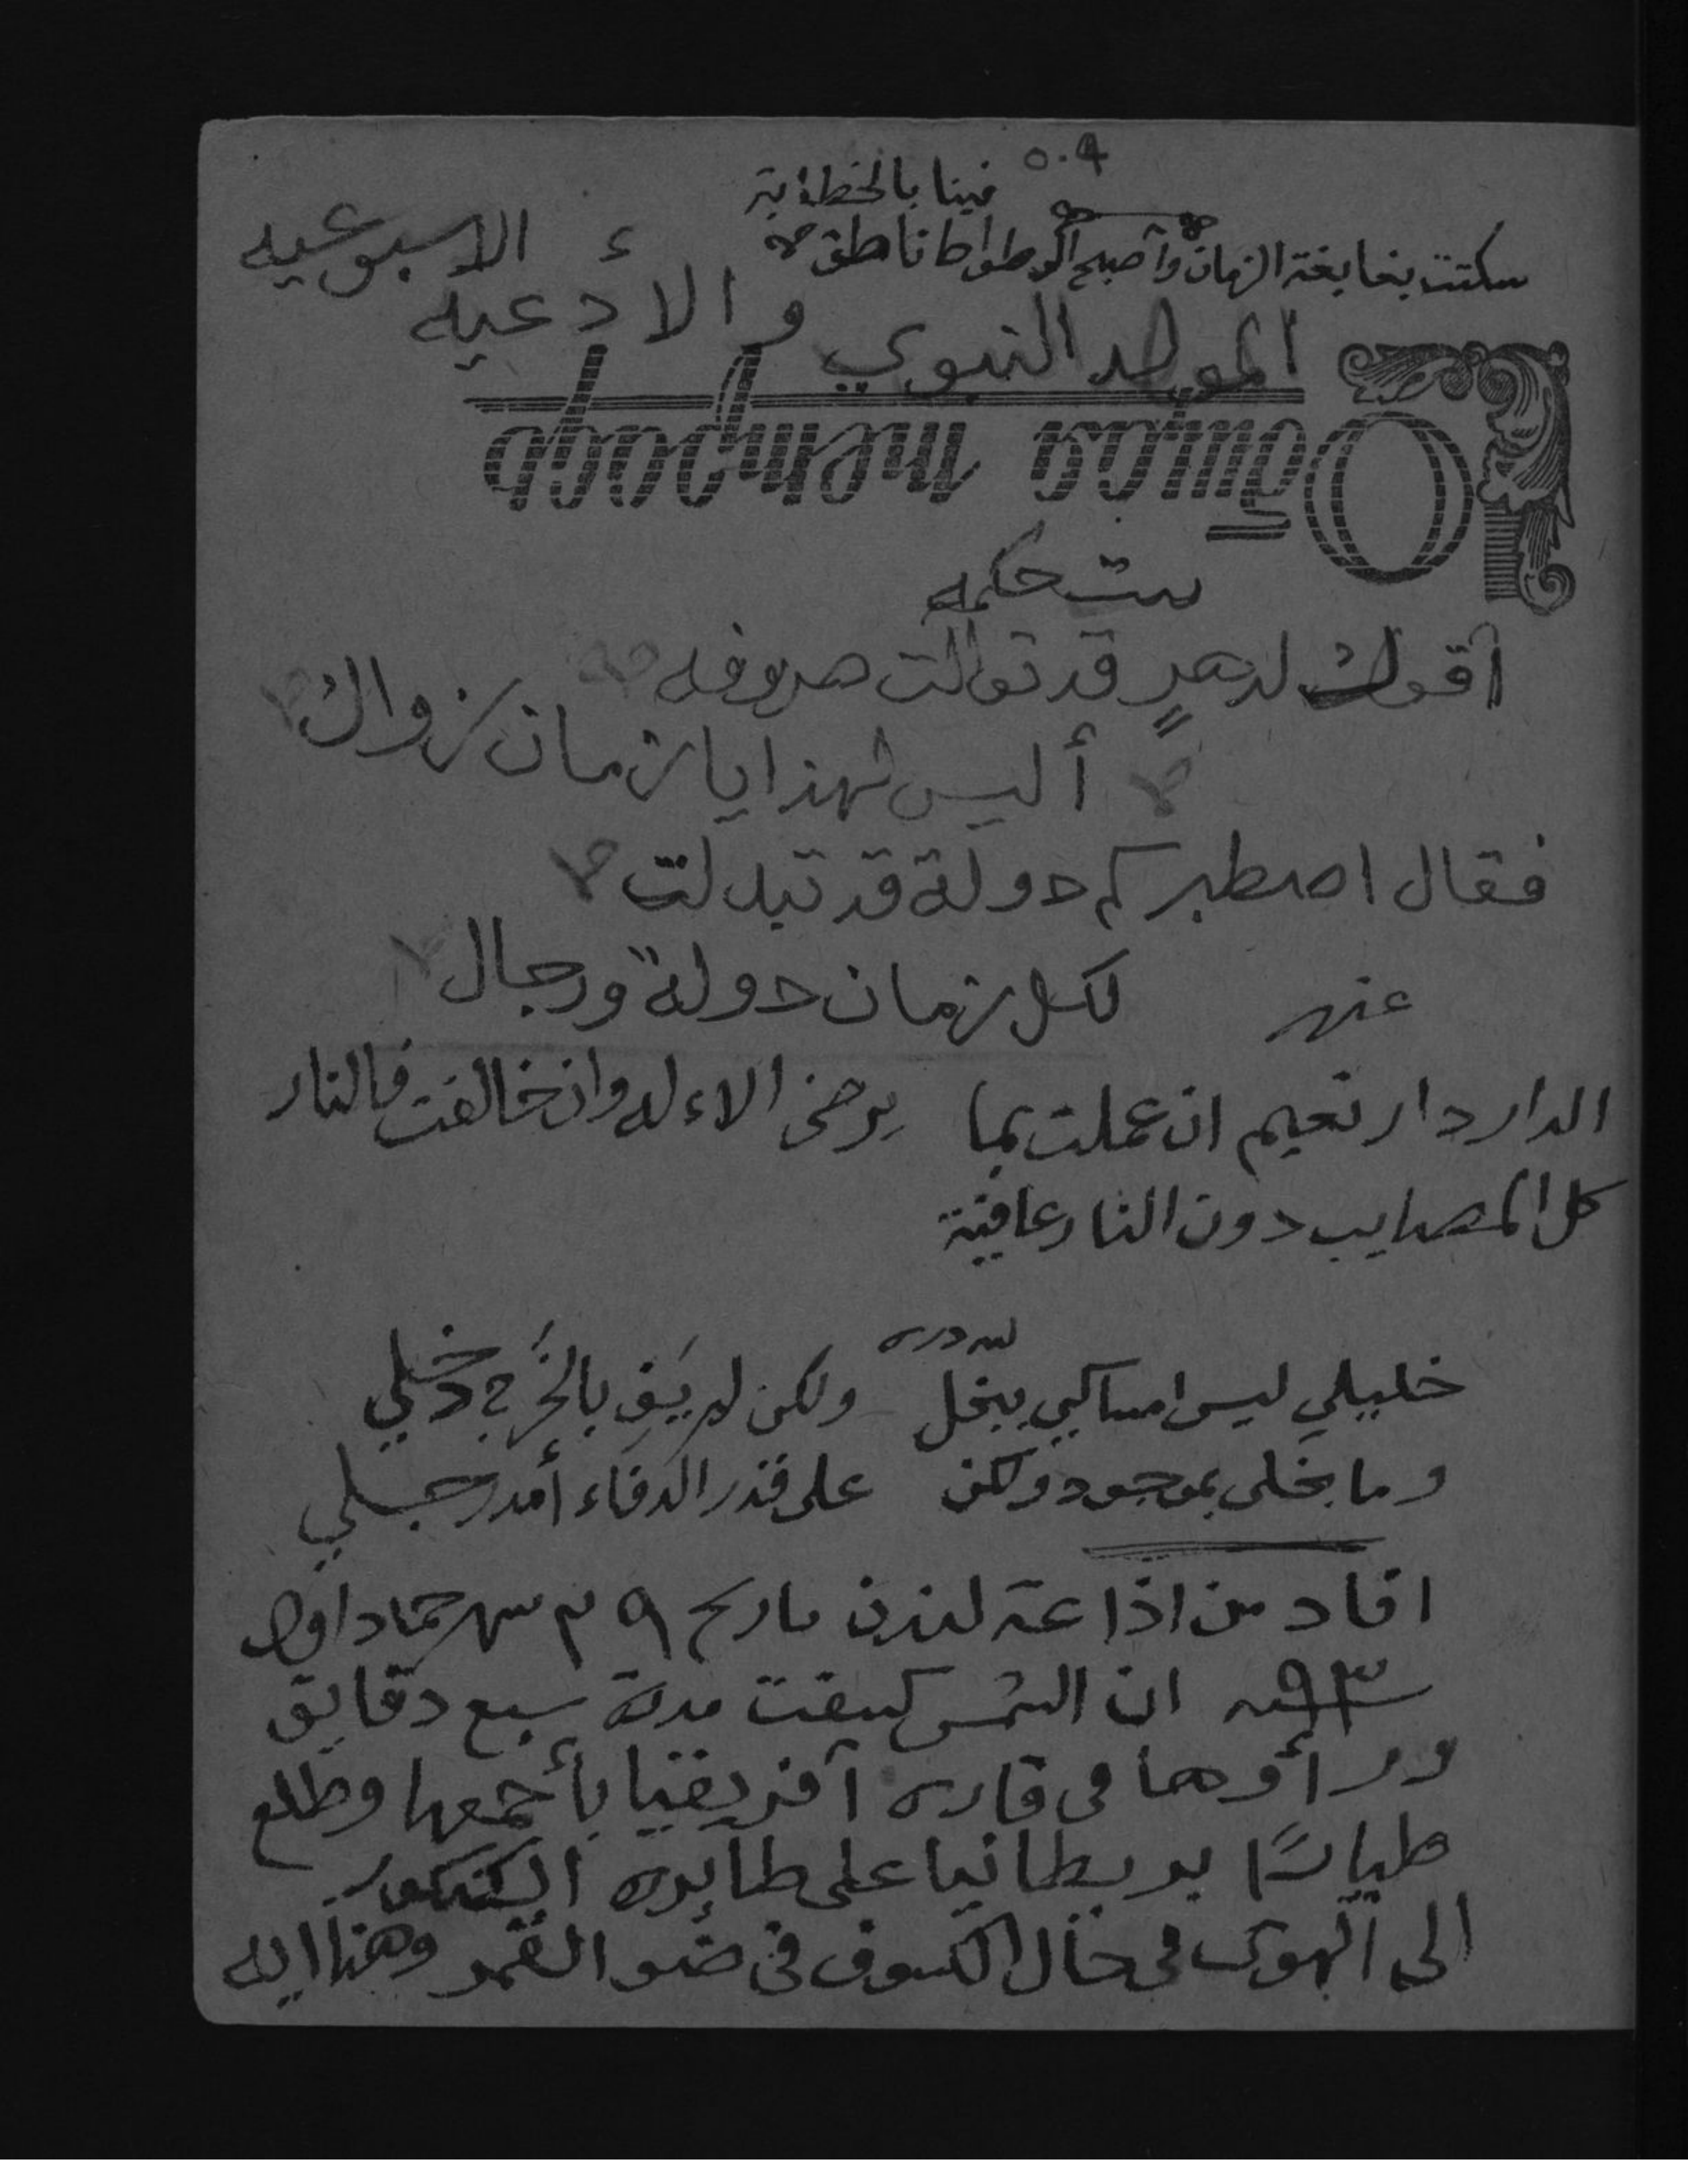 ٥٠٩
فينا بالخطابة
سكتت بغابغة الزمان وأصبح الوطواط ناطق
الاسبوعيه
المولد النبوي والأدعيه
Общая тетрадь
بيت حكمه
أقول لدهرٍ قد توالت صروفه
أليس لهذا يا زمان زوال
فقال اصطبر كم دولة قد تبدلت
لكل زمان دولةٌ ورجال
عنهر
الدار دار نعيم ان عملت بما يرضى الاءله وان خالفت فالنار
كل المصايب دون النار عافية
لله دره
خليلي ليس امساكي ببخل ولكن لم يَفِ بالخَرج دخلي
وما بخلى بموجود ولكن على قدر الدفاء أمد رجلي
افاد من اذاعة لندن تاريخ ٩ م شهر جماد اول
سنة ٩٣ ان الشمس كسفت مدة سبع دقايق
ورأوها في قاره آفريقيا بأجمعها وطلع
بريطانيا على طايره الكنكورد
الى الهوى في حال الكسوف في ضو القمر وهذا ايه